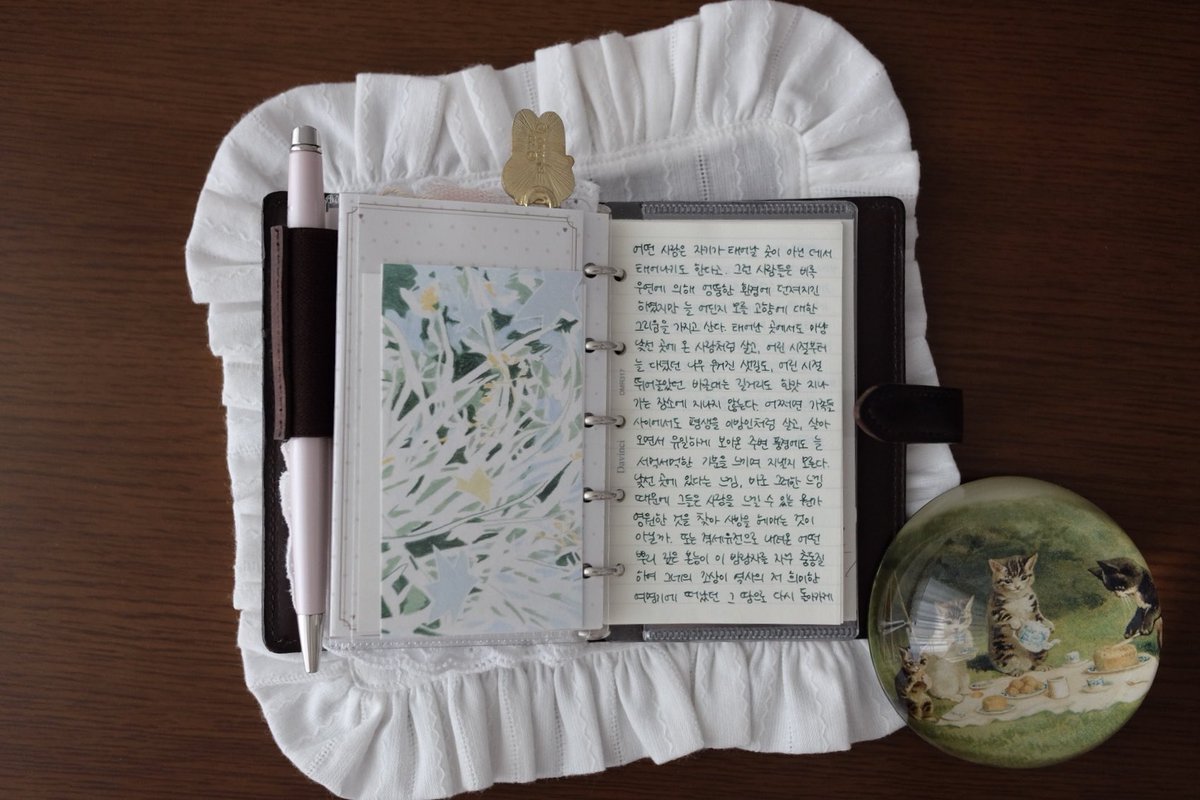 어떤 사람은 자기가 태어날 곳이 아닌 데서
태어나기도 한다고. 그런 사람들은 비록
우연에 의해 엉뚱한 환경에 던져지긴
하였지만 늘 어딘지 모를 고향에 대한
그리움을 가지고 산다. 태어난 곳에서도 마냥
낯선 곳에 온 사람처럼 살고, 어린 시절부터
늘 다녔던 나무 우거진 샛길도, 어린 시절
뛰어놀았던 바글대는 길거리도 한낱 지나
가는 장소에 지나지 않는다. 어쩌면 가족들
사이에서도 평생을 이방인처럼 살고, 살아
오면서 유일하게 보아온 주변 풍경에도 늘
서먹서먹한 기분을 느끼며 지낼지 모른다.
낯선 곳에 있다는 느낌, 바로 그러한 느낌
때문에 그들은 사랑을 느낄 수 있는 뭔가
영원한 것을 찾아 사방을 헤매는 것이
아닐까. 또는 격세유전으로 내려온 어떤
뿌리 깊은 본능이 이 방랑자를 자꾸 충동질
하여 그네의 조상이 역사의 저 희미한
여명기에 떠났던 그 땅으로 다시 돌아가게
Davinci
DMR317